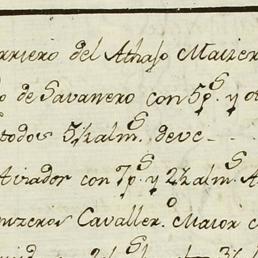 rriero del Athajo Macier
o de Savanero con 5p.s y ot
todos 5½ alm.s deve - -
Aviador con 7p.s y 2½ alm.s A
nzeros Cavaller.o Maior c